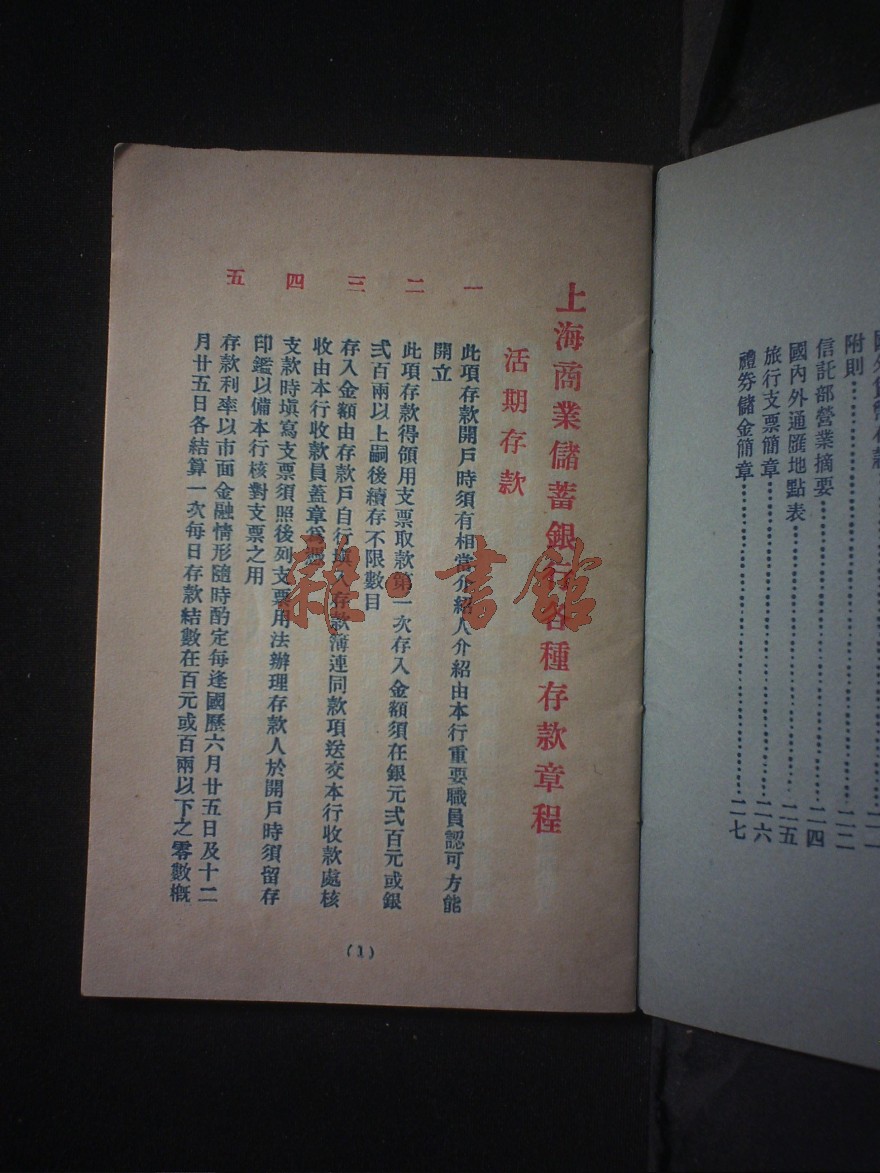 附則………………二二
信託部營業摘要………………二四
國內外通匯地點表………………二五
旅行支票簡章………………二六
禮券儲金簡章………………二七
上海商業儲蓄銀行各種存款章程
活期存款
一 此項存款開戶時須有相當介紹人介紹由本行重要職員認可方能
開立
二 此項存款得領用支票取款第一次存入金額須在銀元弍百元或銀
弍百兩以上嗣後續存不限數目
三 存入金額由存款戶自行填入存款簿連同款項送交本行收款處核
收由本行收款員蓋章爲憑
四 支款時填寫支票須照後列支票用法辦理存款人於開戶時須留存
印鑑以備本行核對支票之用
五 存款利率以市面金融情形隨時酌定每逢國歷六月廿五日及十二
月廿五日各結算一次每日存款結數在百元或百兩以下之零數槪
(1)
雜·書館